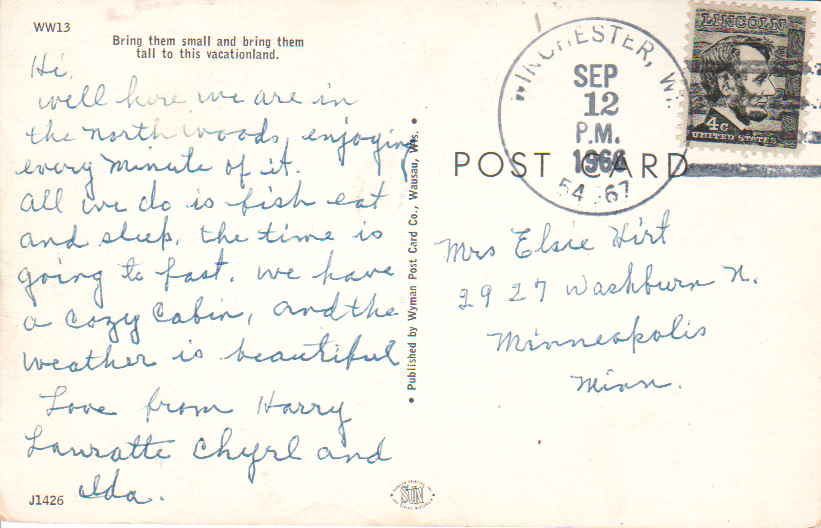 WW13
Bring them small and bring them
tall to this vacationland.
Hi,
well here we are in
the north woods, enjoying
every minute of it.
all we do is fish eat
and sleep. the time is
going to fast. we have
a cozy cabin, and the
weather is beautiful
Love from Harry
Lauratte Chyrl and
Ida.
J1426
• Published by Wyman Post Card Co., Wausau, Wis. •
SUN
WINCHESTER, WI
SEP
12
P.M.
1966
54 67
LINCOLN
4c
UNITED STATES
POST CARD
Mrs Elsie Hirt
2927 Washburn N.
Minneapolis
Minn.